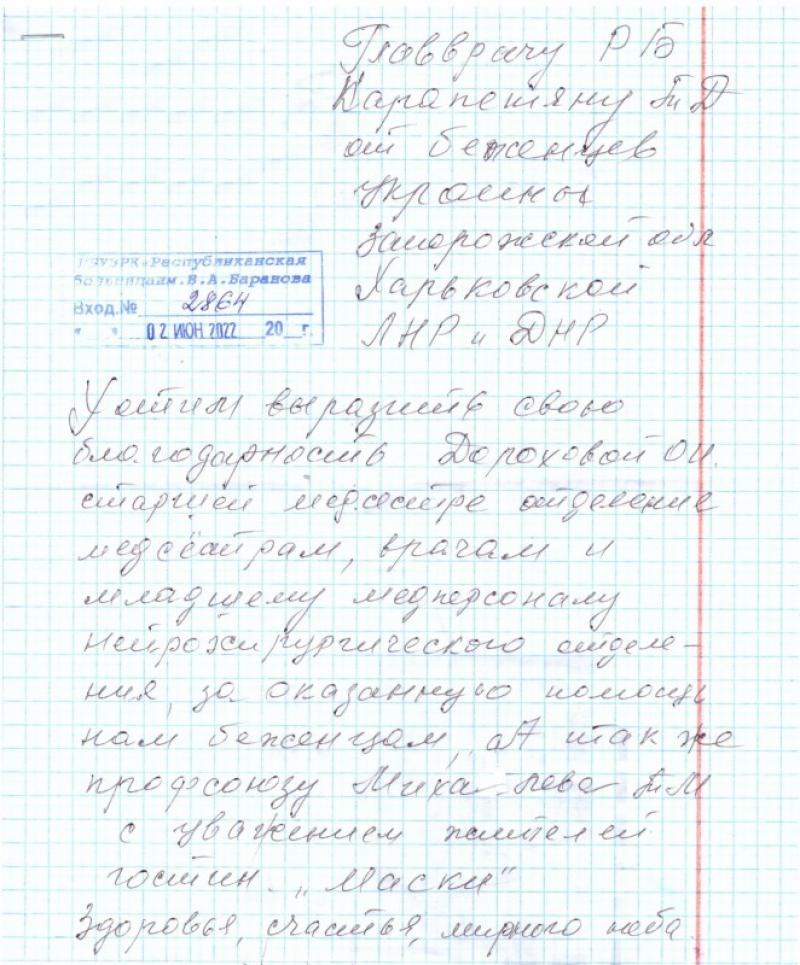 Главврачу РБ
Карапетяну ТД
от беженцев
Украины
Запорожской обл
Харьковской
ЛНР и ДНР
ГБУЗРК«Республиканская
больницаим.В.А.Баранова
Вход.№ 2864
" " 02 ИЮН 2022 20 г.
Хотим выразить свою
благодарность Дороховой ОИ.
старшей медсестре отделение
медсёстрам, врачам и
младшему медперсоналу
нейрохирургического отделе-
ния, за оказанную помощь
нам беженцам, А так же
профсоюзу ТМ
с уважением жителей
гостин. „Маски"
Здоровья, счастья, мирного неба.